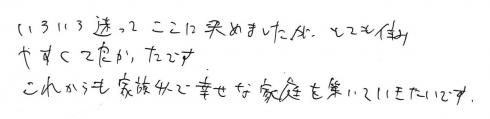 いろいろ迷ってここに決めましたが、とても住み
やすくて良かったです
これからも家族4人で幸せな家庭を築いていきたいです。